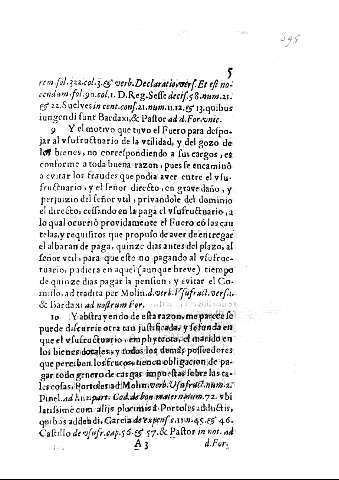 5
rem.fol.322.col.3.& verb.Declaratio,vers.Et est no-
cendum.fol.90.col.1. D.Reg.Sesse decis.58.num.21.
& 22. Suelves in cent.cons.21.num.11.12.& 13.quibus
iungendi sunt Bardaxi,& Pastor ad d.For.vnic.
9 Y el motivo que tuvo el Fuero para despo-
jar al vsufructuario de la vtilidad, y del gozo de
los bienes, no correspondiendo a sus cargos, es
conforme a toda buena razon, pues se encaminò
a evitar los fraudes que podia aver entre el vsu-
fructuario, y el señor directo, en grave daño, y
perjuizio del señor vtil, privandole del dominio
el directo, cessando en la paga el vsufructuario, a
lo qual ocurriò providamente el Fuero cõ las cau
telas, y requisitos que propuso de aver de entregar
el albaran de paga, quinze dias antes del plazo, al
señor vtil, para que este no pagando al vsufruc-
tuario, pudiera en aquel (aunque breve) tiempo
de quinze dias pagar la pension, y evitar el Co-
misso, ad tradita per Molin.d.verb.Vsufruct.vers.
& Bardaxi ad nostrum For.
10 Y abstrayendo de esta razon, me parece se
puede discurrir otra tan justificada, y se funda en
que el vsufructuario, emphyteota, el marido en
los bienes dotales, y todos los demàs posseedores
que perciben los frutos, tienen obligacion de pa-
gar todo genero de cargas impuestas sobre las ta-
les cosas, Portoles ad Molin.verb.Vsufructus.num.2.
Pinel.ad l.1.2.part. Cod.de bon.maternis.num.72. vbi
latissimè cum alijs plurimis à Portoles adductis,
quibus addendi, Garcia de expens.c.11.n.45.& 46.
Castillo de vsufr.cap.56.& 57.& Pastor in not. ad
A 3 d.For.